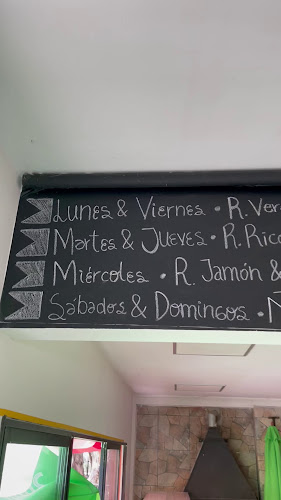 Lunes & Viernes • R. Ver
Martes & Jueves • R. Ric
Miércoles • R. Jamón &
Sábados & Domingos • Ñ